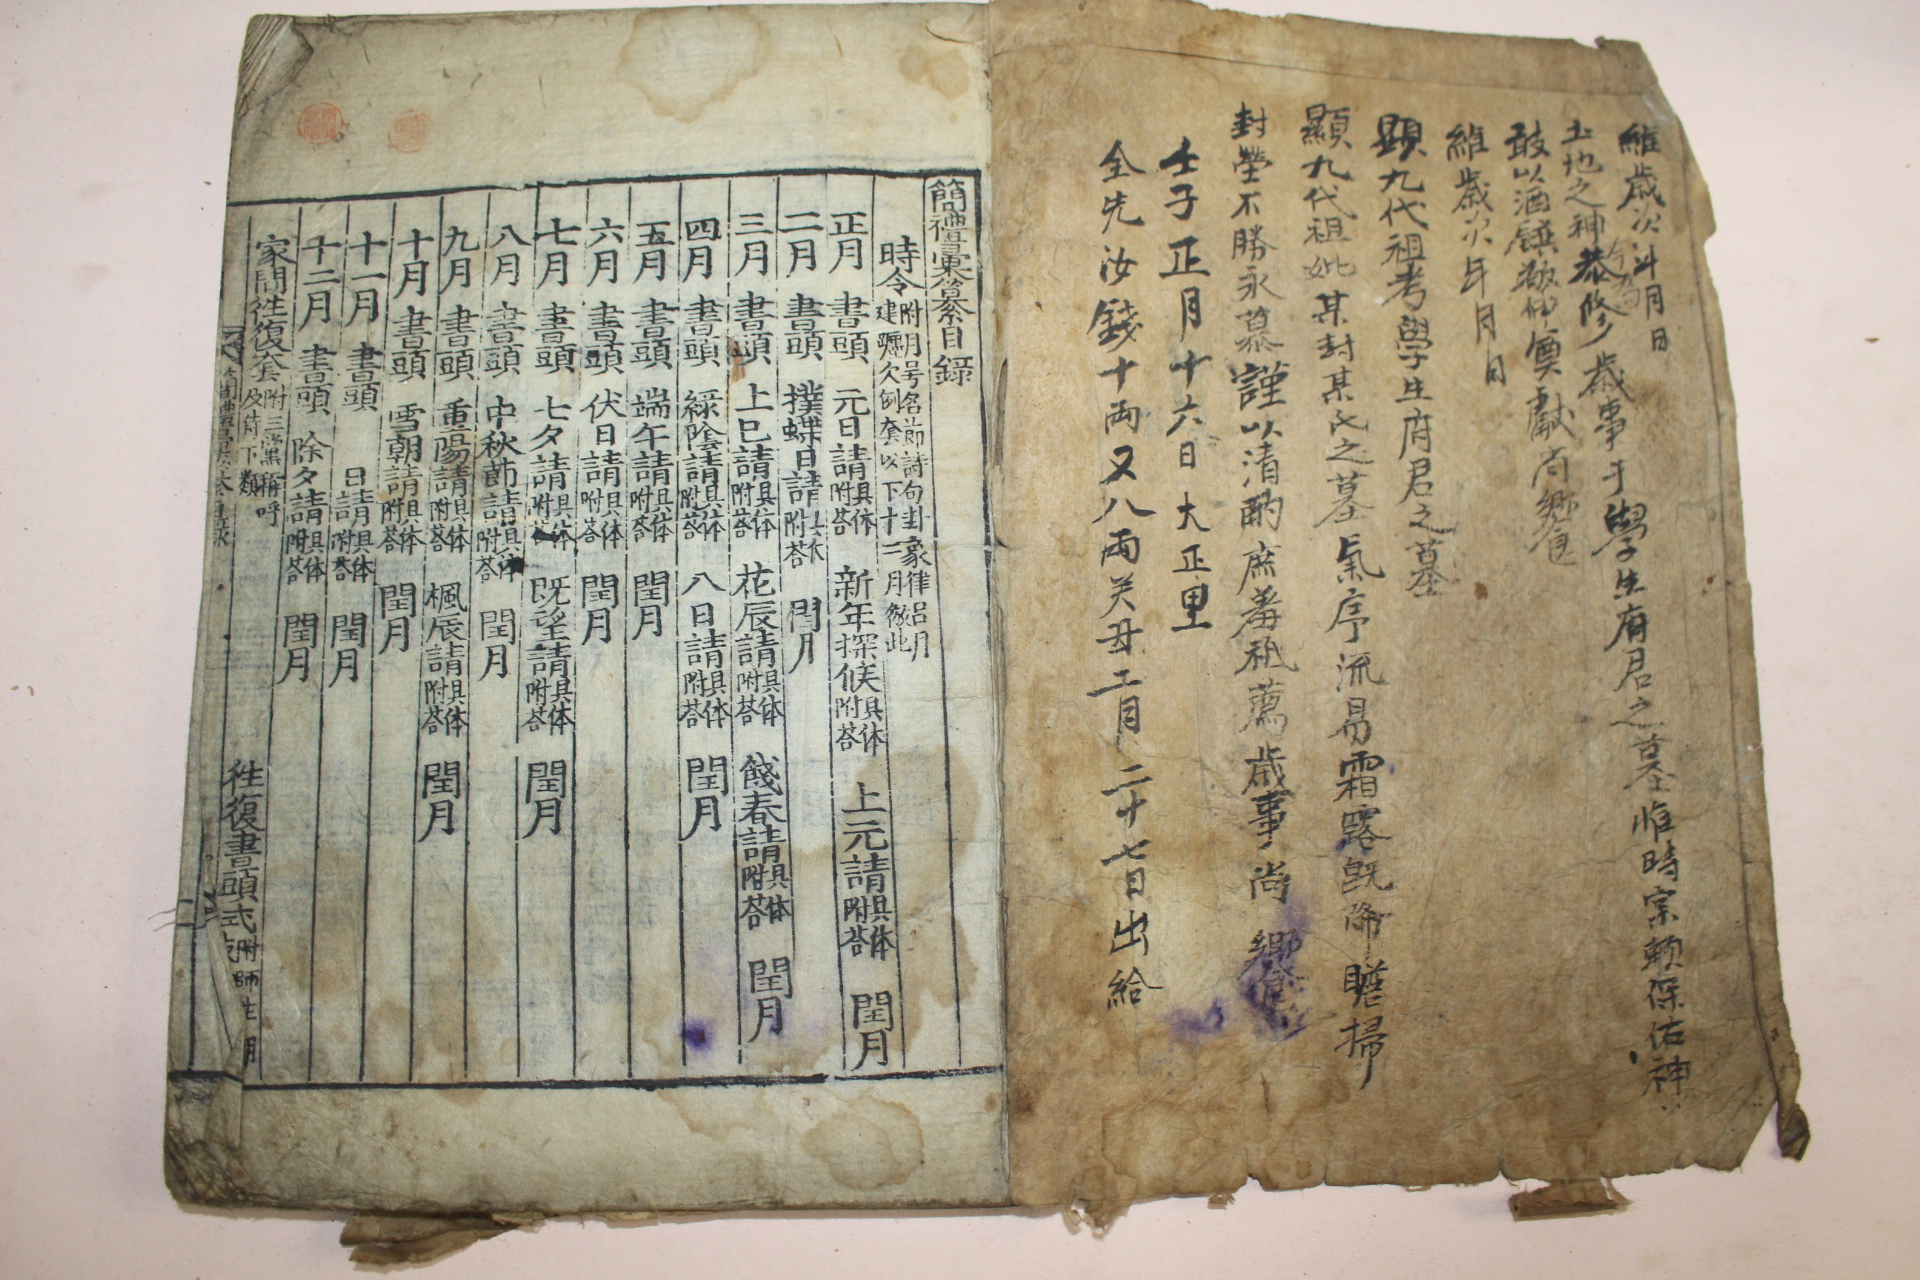 維歲次年月日
土地之神 今爲 恭修歲事于學生府君之墓惟時宗賴保佑神
敢以酒饌敬伸奠獻尚饗
維歲次年月日
顯九代祖考學生府君之墓
顯九代祖妣某封某氏之墓氣序流易霜露旣降瞻掃
封塋不勝永慕謹以清酌庶羞祗薦歲事尚饗
壬子正月十六日大正里
全先汝錢十兩又八兩 二月二十七日出給
簡禮彙纂目錄
時令 附月号名節詩句卦象律呂月建 欠例套以下十二月倣此
正月 書頭 元日請 附具体答 新年探候 附具体答 上元請 附具体答 閏月
二月 書頭 撲蝶日請 附具体答 閏月
三月 書頭 上巳請 附具体答 花辰請 附具体答 餞春請 附具体答 閏月
四月 書頭 綠陰請 附具体答 八日請 附具体答 閏月
五月 書頭 端午請 附具体答 閏月
六月 書頭 伏日請 附具体答 閏月
七月 書頭 七夕請 附具体答 旣望請 附具体答 閏月
八月 書頭 中秋節請 附具体答 閏月
九月 書頭 重陽請 附具体答 楓辰請 附具体答 閏月
十月 書頭 雪朝請 附具体答 閏月
十一月 書頭 日請 附具体答 閏月
十二月 書頭 除夕請 附具体答 閏月
家間往復套 附三黨稱呼及侍下類 往復書頭式 附師生朋